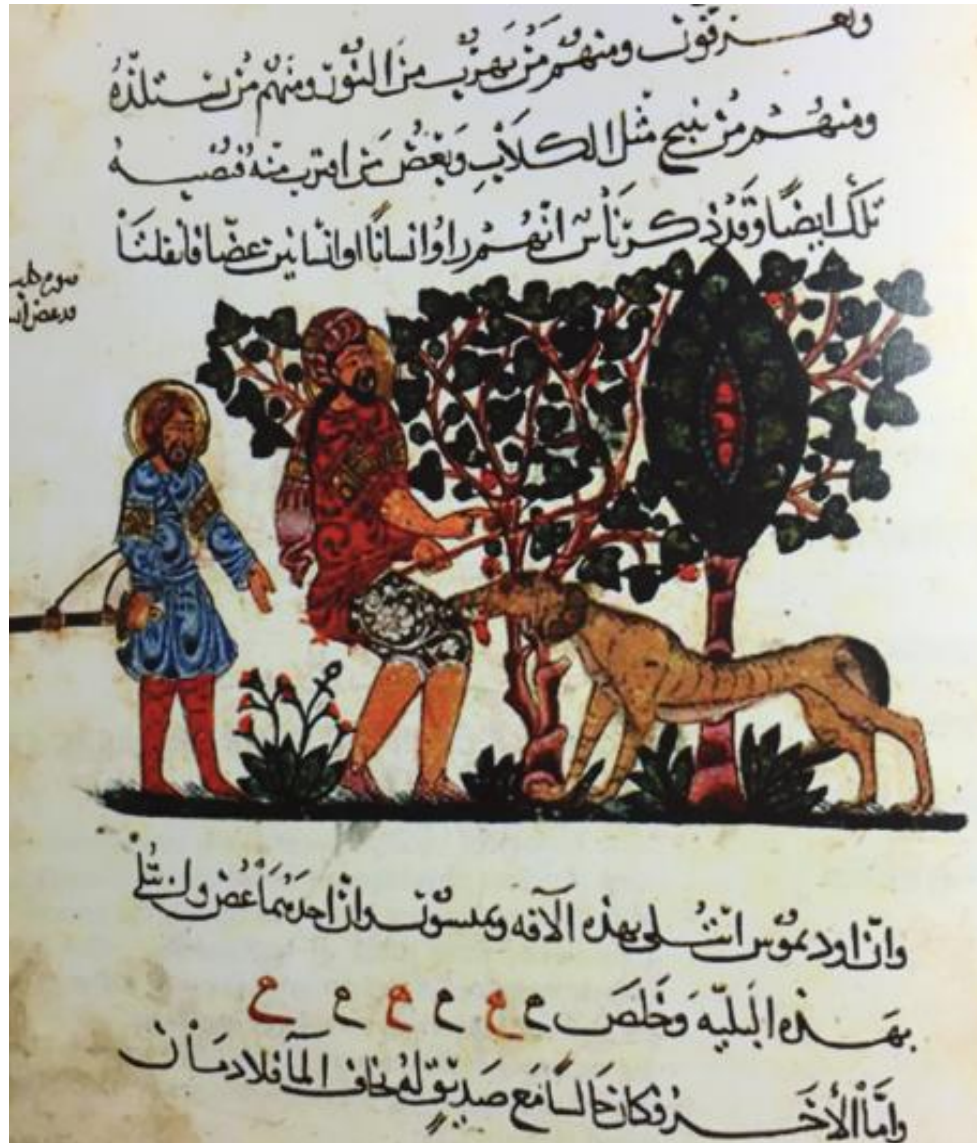 ويعرفون ومنهم من يهرب من النور ومنهم من يستلذه
ومنهم من ينبح مثل الكلاب وبعض من اقترب منه فتصيبه
تلك ايضا وقد ذكر ناس انهم راوا انسانا او انسانين عضا فافلتا
وان اوديموس ابتلى بهذه الآفه وان احدهما عض ولن يبتلى
بهذه البليه وخلص
واما الأخر فكان جالسا مع صديق له يخاف الما فلا دمان